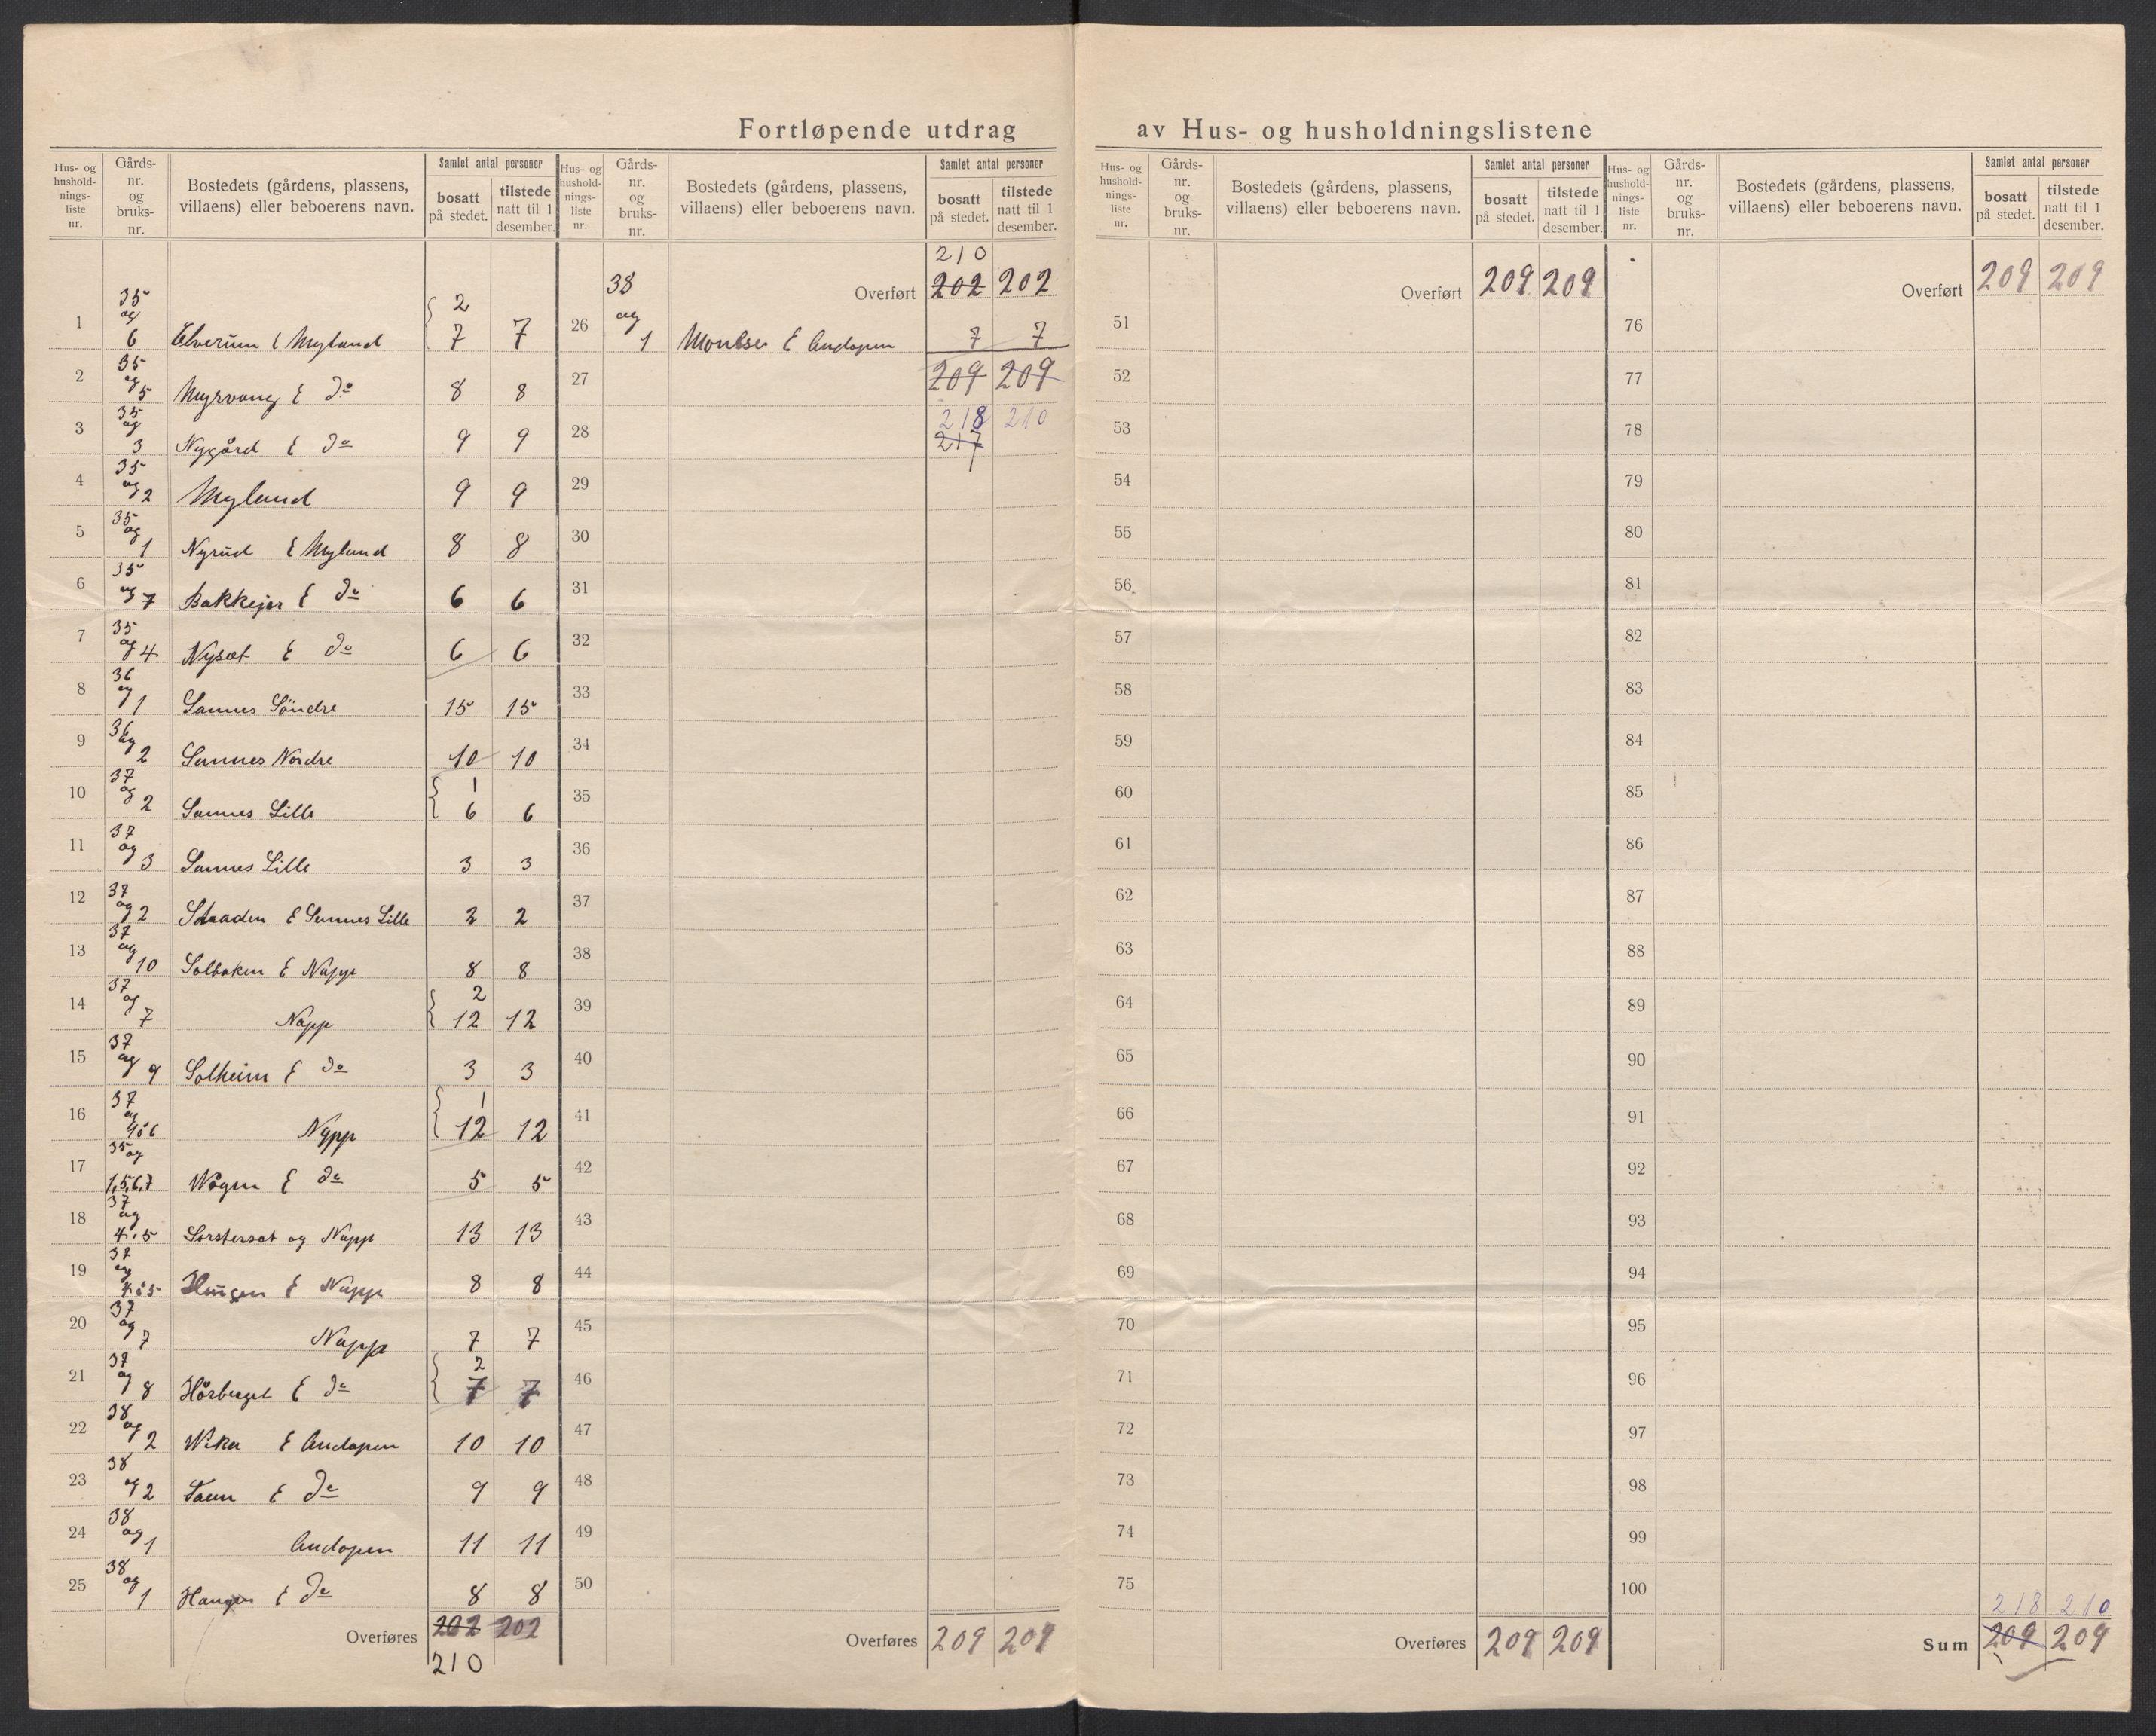 Fortløpende utdrag av Hus- og husholdningslistene
Hus- og husholdnings-liste nr. Gårds-nr. og bruks-nr. Bostedets (gårdens, plassens, villaens) eller beboerens navn. Samlet antal personer bosatt på stedet. tilstede natt til 1 desember.
1 35 og 6 Elverum E Myland { 2 7 7
2 35 og 5 Myrvang E do 8 8
3 35 og 3 Nygård E do 9 9
4 35 og 2 Myland 9 9
5 35 og 1 Nyrud E Myland 8 8
6 35 og 7 Bakkejor E do 6 6
7 35 og 4 Nysæt E do 6 6
8 36 og 1 Sannes Söndre 15 15
9 36 og 2 Sannes Nordre 10 10
10 37 og 2 Sannes Lille { 1 6 6
11 37 og 3 Sannes Lille 3 3
12 37 og 2 Straaden E Sannes Lille 2 2
13 37 og 10 Solbaken E Napp 8 8
14 37 og 7 Napp { 2 12 12
15 37 og 9 Solheim E do 3 3
16 37 og Napp { 1 12 12
17 35 og 1,5,6,7 Wågen E do 5 5
18 37 og 4.5 og Napp 13 13
19 37 og 4 i 5 Haugen E Napp 8 8
20 37 og 7 Napp 7 7
21 37 og 8 Hårberget E do { 2 7 7
22 38 og 2 Wika E Andopen 10 10
23 38 og 2 E do 9 9
24 38 og 1 Andopen 11 11
25 38 og 1 Haugen E do 8 8
Overføres 202 202
210
Hus- og husholdnings-liste nr. Gårds-nr. og bruks-nr. Bostedets (gårdens, plassens, villaens) eller beboerens navn. Samlet antal personer bosatt på stedet. tilstede natt til 1 desember.
210
Overført 202 202
26 38 og 1 E Andopen 7 7
27 209 209
218 210
28 217
29
30
31
32
33
34
35
36
37
38
39
40
41
42
43
44
45
46
47
48
49
50
Overføres 209 209
Hus- og hushold-nings-liste nr. Gårds-nr. og bruks-nr. Bostedets (gårdens, plassens, villaens) eller beboerens navn. Samlet antal personer bosatt på stedet. tilstede natt til 1 desember.
Overført 209 209
51
52
53
54
55
56
57
58
59
60
61
62
63
64
65
66
67
68
69
70
71
72
73
74
75
Overføres 209 209
Hus- og husholdnings-liste nr. Gårds-nr. og bruks-nr. Bostedets (gårdens, plassens, villaens) eller beboerens navn. Samlet antal personer bosatt på stedet. tilstede natt til 1 desember.
Overført 209 209
76
77
78
79
80
81
82
83
84
85
86
87
88
89
90
91
92
93
94
95
96
97
98
99
100
218 210
Sum 209 209